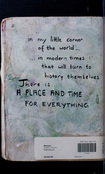 in my little corner
of the world...
in modern times
that will turn to
history themselves
There is
A PLACE AND TIME
FOR EVERYTHING